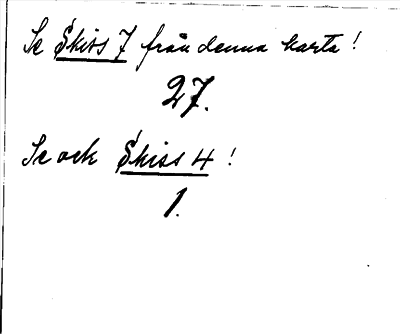 Se Skiss 7 från denna karta!
27.
Se ock Skiss 4!
1.